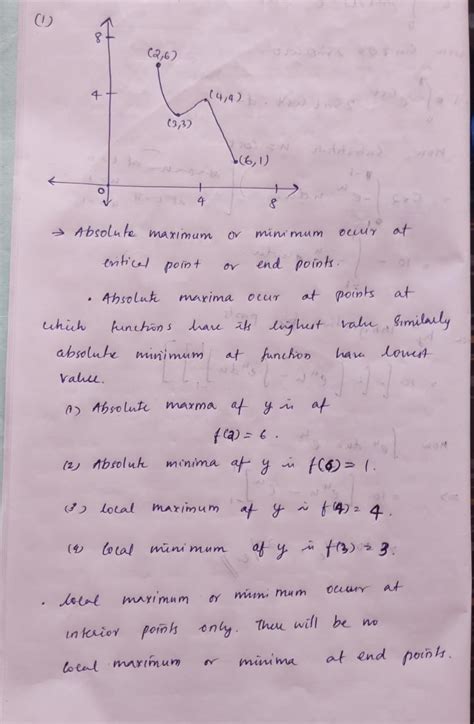 (1)
8
(2,6)
4
(4,4)
(3,3)
(6,1)
0
4
8
→ Absolute maximum or minimum occur at
critical point or end points.
• Absolute maxima occur at points at
which functions have its highest value Similarly
absolute minimum at function have lowest
value.
(1) Absolute maxma of y is at
f(2) = 6 .
(2) Absolute minima of y is f(6) = 1 .
(3) local maximum of y is f(4) = 4 .
(4) local minimum of y is f(3) = 3 .
• local maximum or minimum occur at
interior points only. There will be no
local maximum or minima at end points.